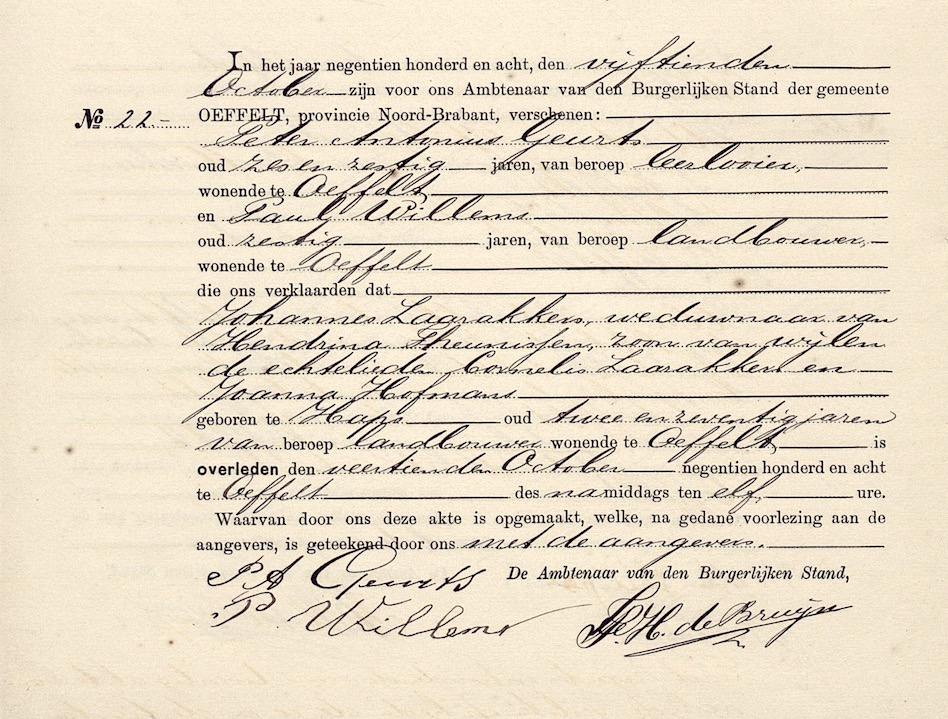 In het jaar negentien honderd en acht, den vijftienden
October zijn voor ons Ambtenaar van den Burgerlijken Stand der gemeente
No 22 - OEFFELT, provincie Noord-Brabant, verschenen:
Peter Antonius Geurts
oud zes en zestig jaren, van beroep leerlooier,
wonende te Oeffelt
en Paul Willems
oud zestig jaren, van beroep landbouwer,
wonende te Oeffelt
die ons verklaarden dat
Johannes Laarakkers, weduwnaar van
Hendrina Theunissen, zoon van wijlen
de echtelieden Cornelis Laarakkers en
Joanna Hofmans
geboren te Haps oud twee en zeventig jaren
van beroep landbouwer wonende te Oeffelt is
overleden den veertienden October negentien honderd en acht
te Oeffelt des namiddags ten elf ure.
Waarvan door ons deze akte is opgemaakt, welke, na gedane voorlezing aan de
aangevers, is geteekend door ons met de aangevers.
P A Geurts De Ambtenaar van den Burgerlijken Stand,
P Willems H. de Bruijn